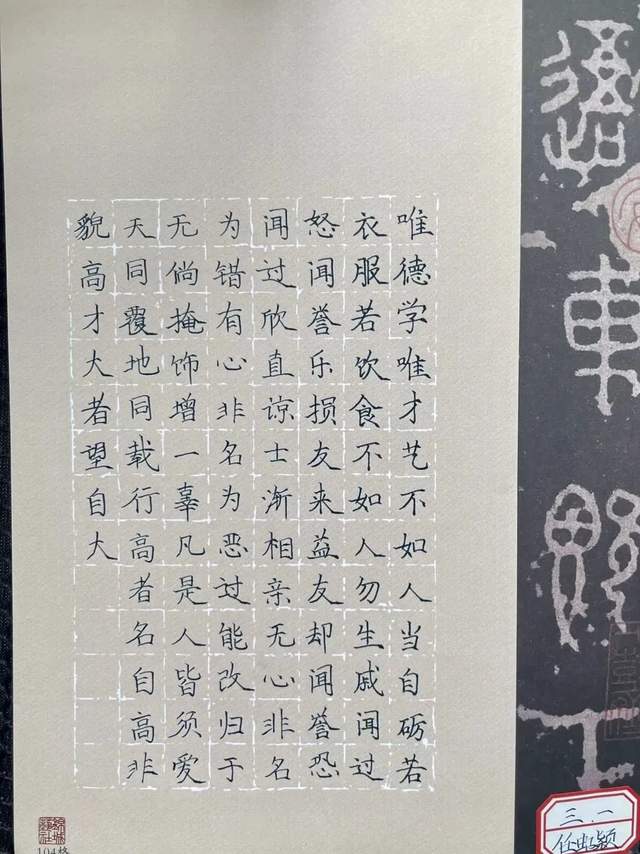 唯德学唯才艺不如人当自砺若
衣服若饮食不如人勿生戚闻过
怒闻誉乐损友来益友却闻誉恐
闻过欣直谅士渐相亲无心非名
为错有心非名为恶过能改归于
无倘掩饰增一辜凡是人皆须爱
天同覆地同载行高者名自高非
貌高才大者望自大
104格
東野
三.一